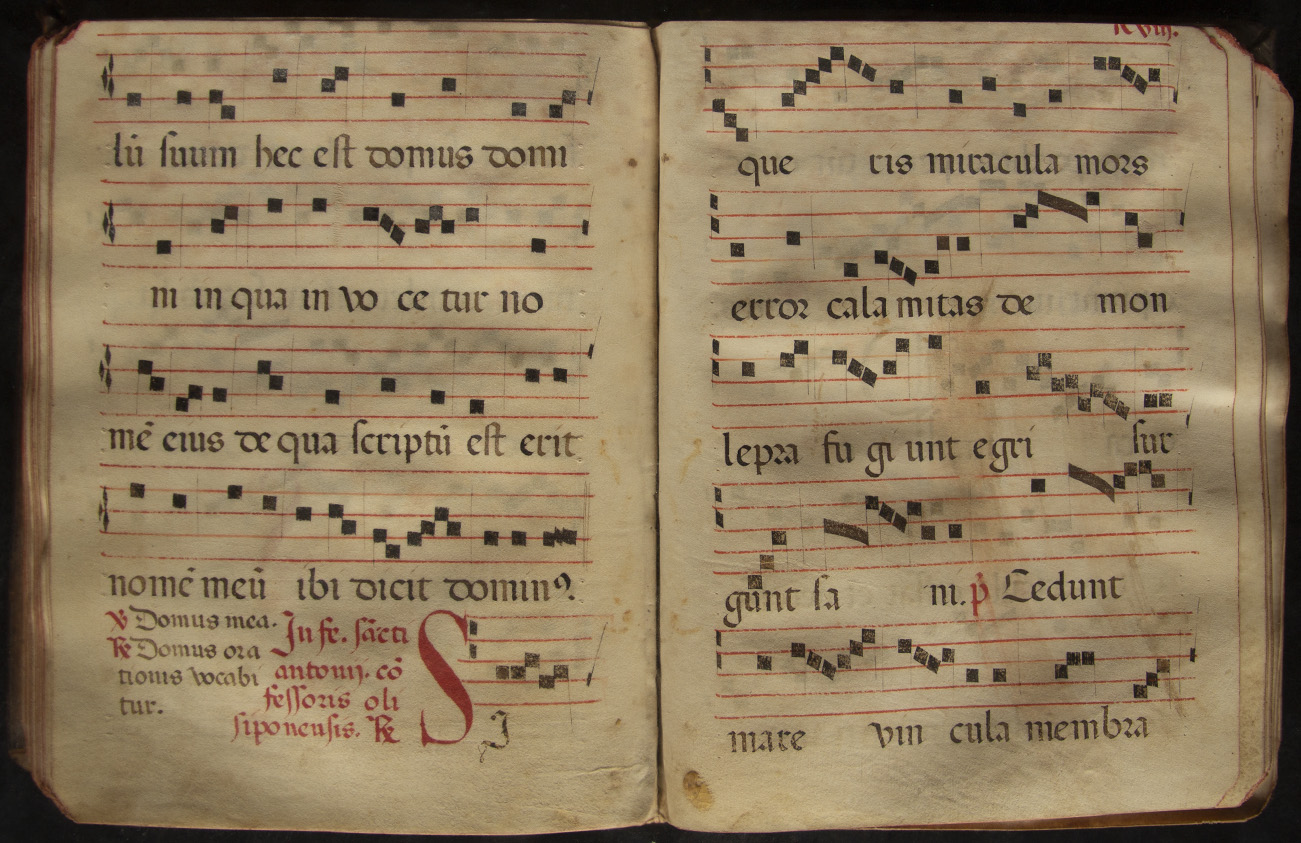 lū suum hec est domus domi
ni in qua in vo ce tur no
mē eius de qua scriptū est erit
nomē meū ibi dicit dominꝰ.
℣ Domus mea.
℟ Domus ora
tionis vocabi
tur.
In fe. sācti
antonij. cō
fessoris oli
siponensis. ℟
S
I
xviij.
que ris miracula mors
error cala mitas de mon
lepra fu gi unt egri sur
gunt sa ni. p̄ Cedunt
mare vin cula membra